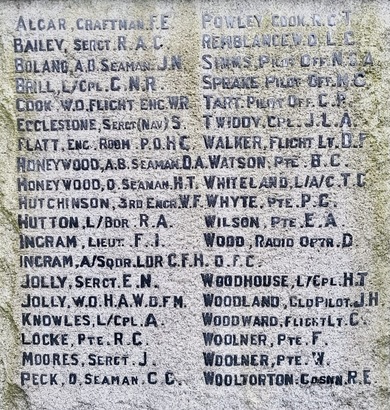 ALGAR, CRAFTMAN. F.E
BAILEY, SERGT. R.A.C.
BOLAND, A.B. SEAMAN. J.N
BRILL, L/CPL. C.N.R
COOK. W.O. FLIGHT ENG. W.R.
ECCLESTONE, SERGT(NAV) S.
FLATT, ENG. ROOM P.O. H.C.
HONEYWOOD, A.B. SEAMAN. D.A.
HONEYWOOD, O. SEAMAN. H.T.
HUTCHINSON, 3RD ENGR. W.F.
HUTTON, L/BDR. R.A.
INGRAM, LIEUT. F.J.
INGRAM, A/SQDR. LDR C.F.H. D.F.C.
JOLLY, SERGT. E.N.
JOLLY, W.O. H.A.W. D.F.M.
KNOWLES, L/CPL. A.
LOCKE, PTE. R.C.
MOORES, SERGT. J
PECK, O. SEAMAN. C.C.
POWLEY, COOK. R.C.T.
REMBLANCE W.O. L.C.
SIMMS, PILOT OFF. N.S.A
SPRAKE PILOT OFF. M.C
TART. PILOT OFF. C.R.
TWIDDY. CPL. J.L.A.
WALKER, FLIGHT LT. D.F
WATSON, PTE. B.C.
WHITELAND, L/A/C. T.C
WHYTE, PTE. P.G.
WILSON, PTE. E.A
WOOD, RADIO OPTR. D.
WOODHOUSE, L/CPL. H.T
WOODLAND, GLD PILOT. J.H
WOODWARD, FLIGHT LT. C.
WOOLNER, PTE. F.
WOOLNER, PTE. W.
WOOLTORTON. GDSMN. R.E.